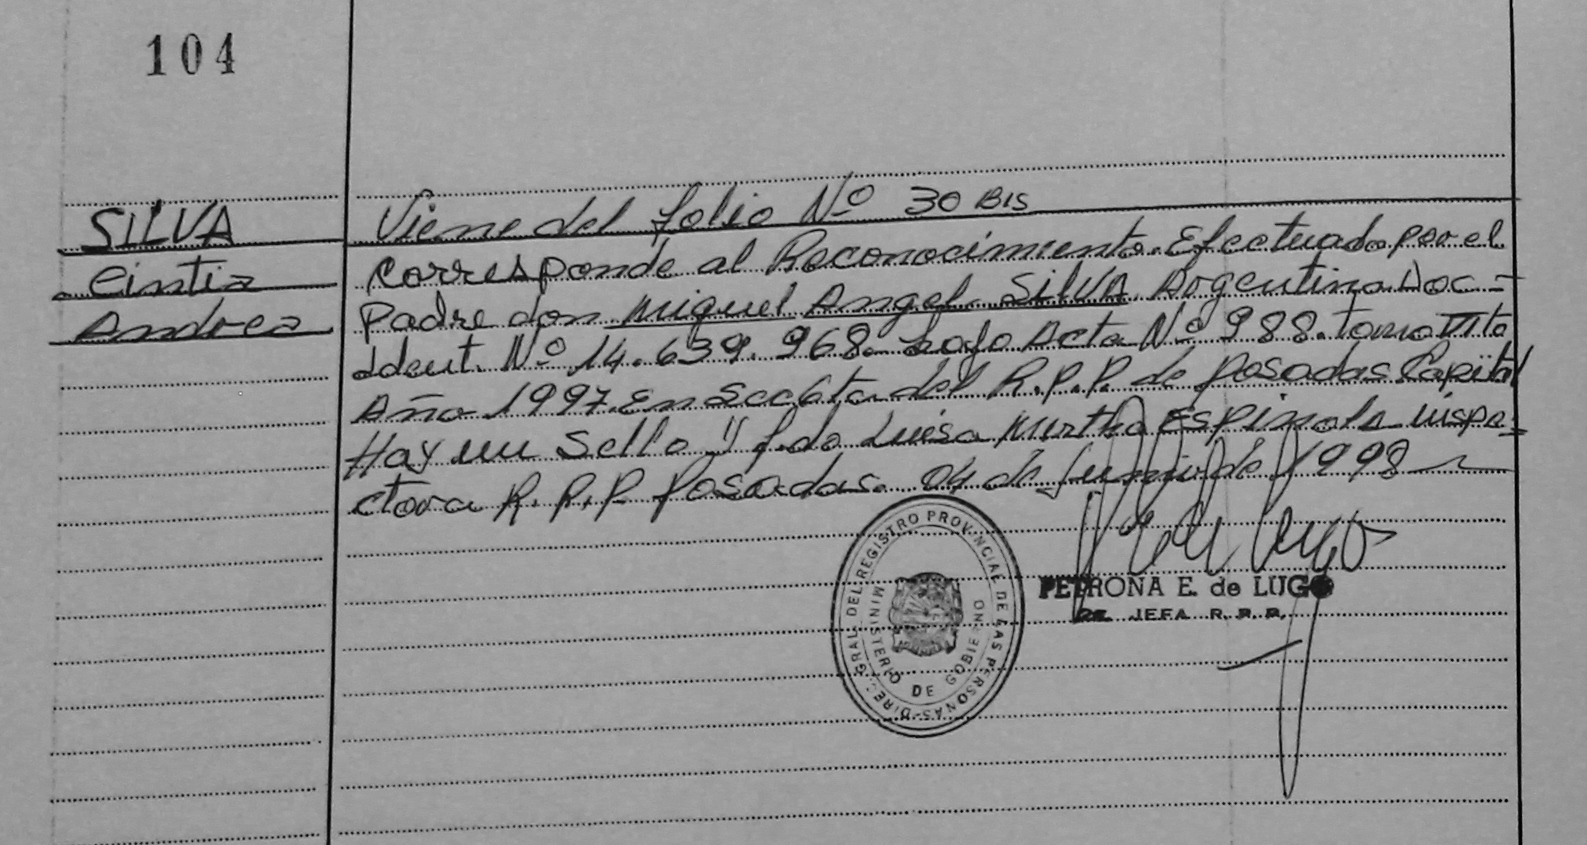 104
SILVA
Cintia
Andrea
Viene del folio Nº 30 BIS
Corresponde al Reconocimiento. Efectuado por el
Padre don Miguel Angel SILVA Argentino Doc-
Ident. Nº 14.639.968. bajo Acta Nº 988. tomo VIto
Año 1997. En Secc 6ta del R.P.P. de Posadas Capital
Hay un Sello y f.do Luisa Mirtha Espinola inspe-
ctora R.P.P. Posadas. 04 de Junio de 1998
DIREC. GRAL DEL REGISTRO PROVINCIAL DE LAS PERSONAS-
MINISTERIO DE GOBIERNO
PETRONA E. de LUGO
JEFA R.P.P.